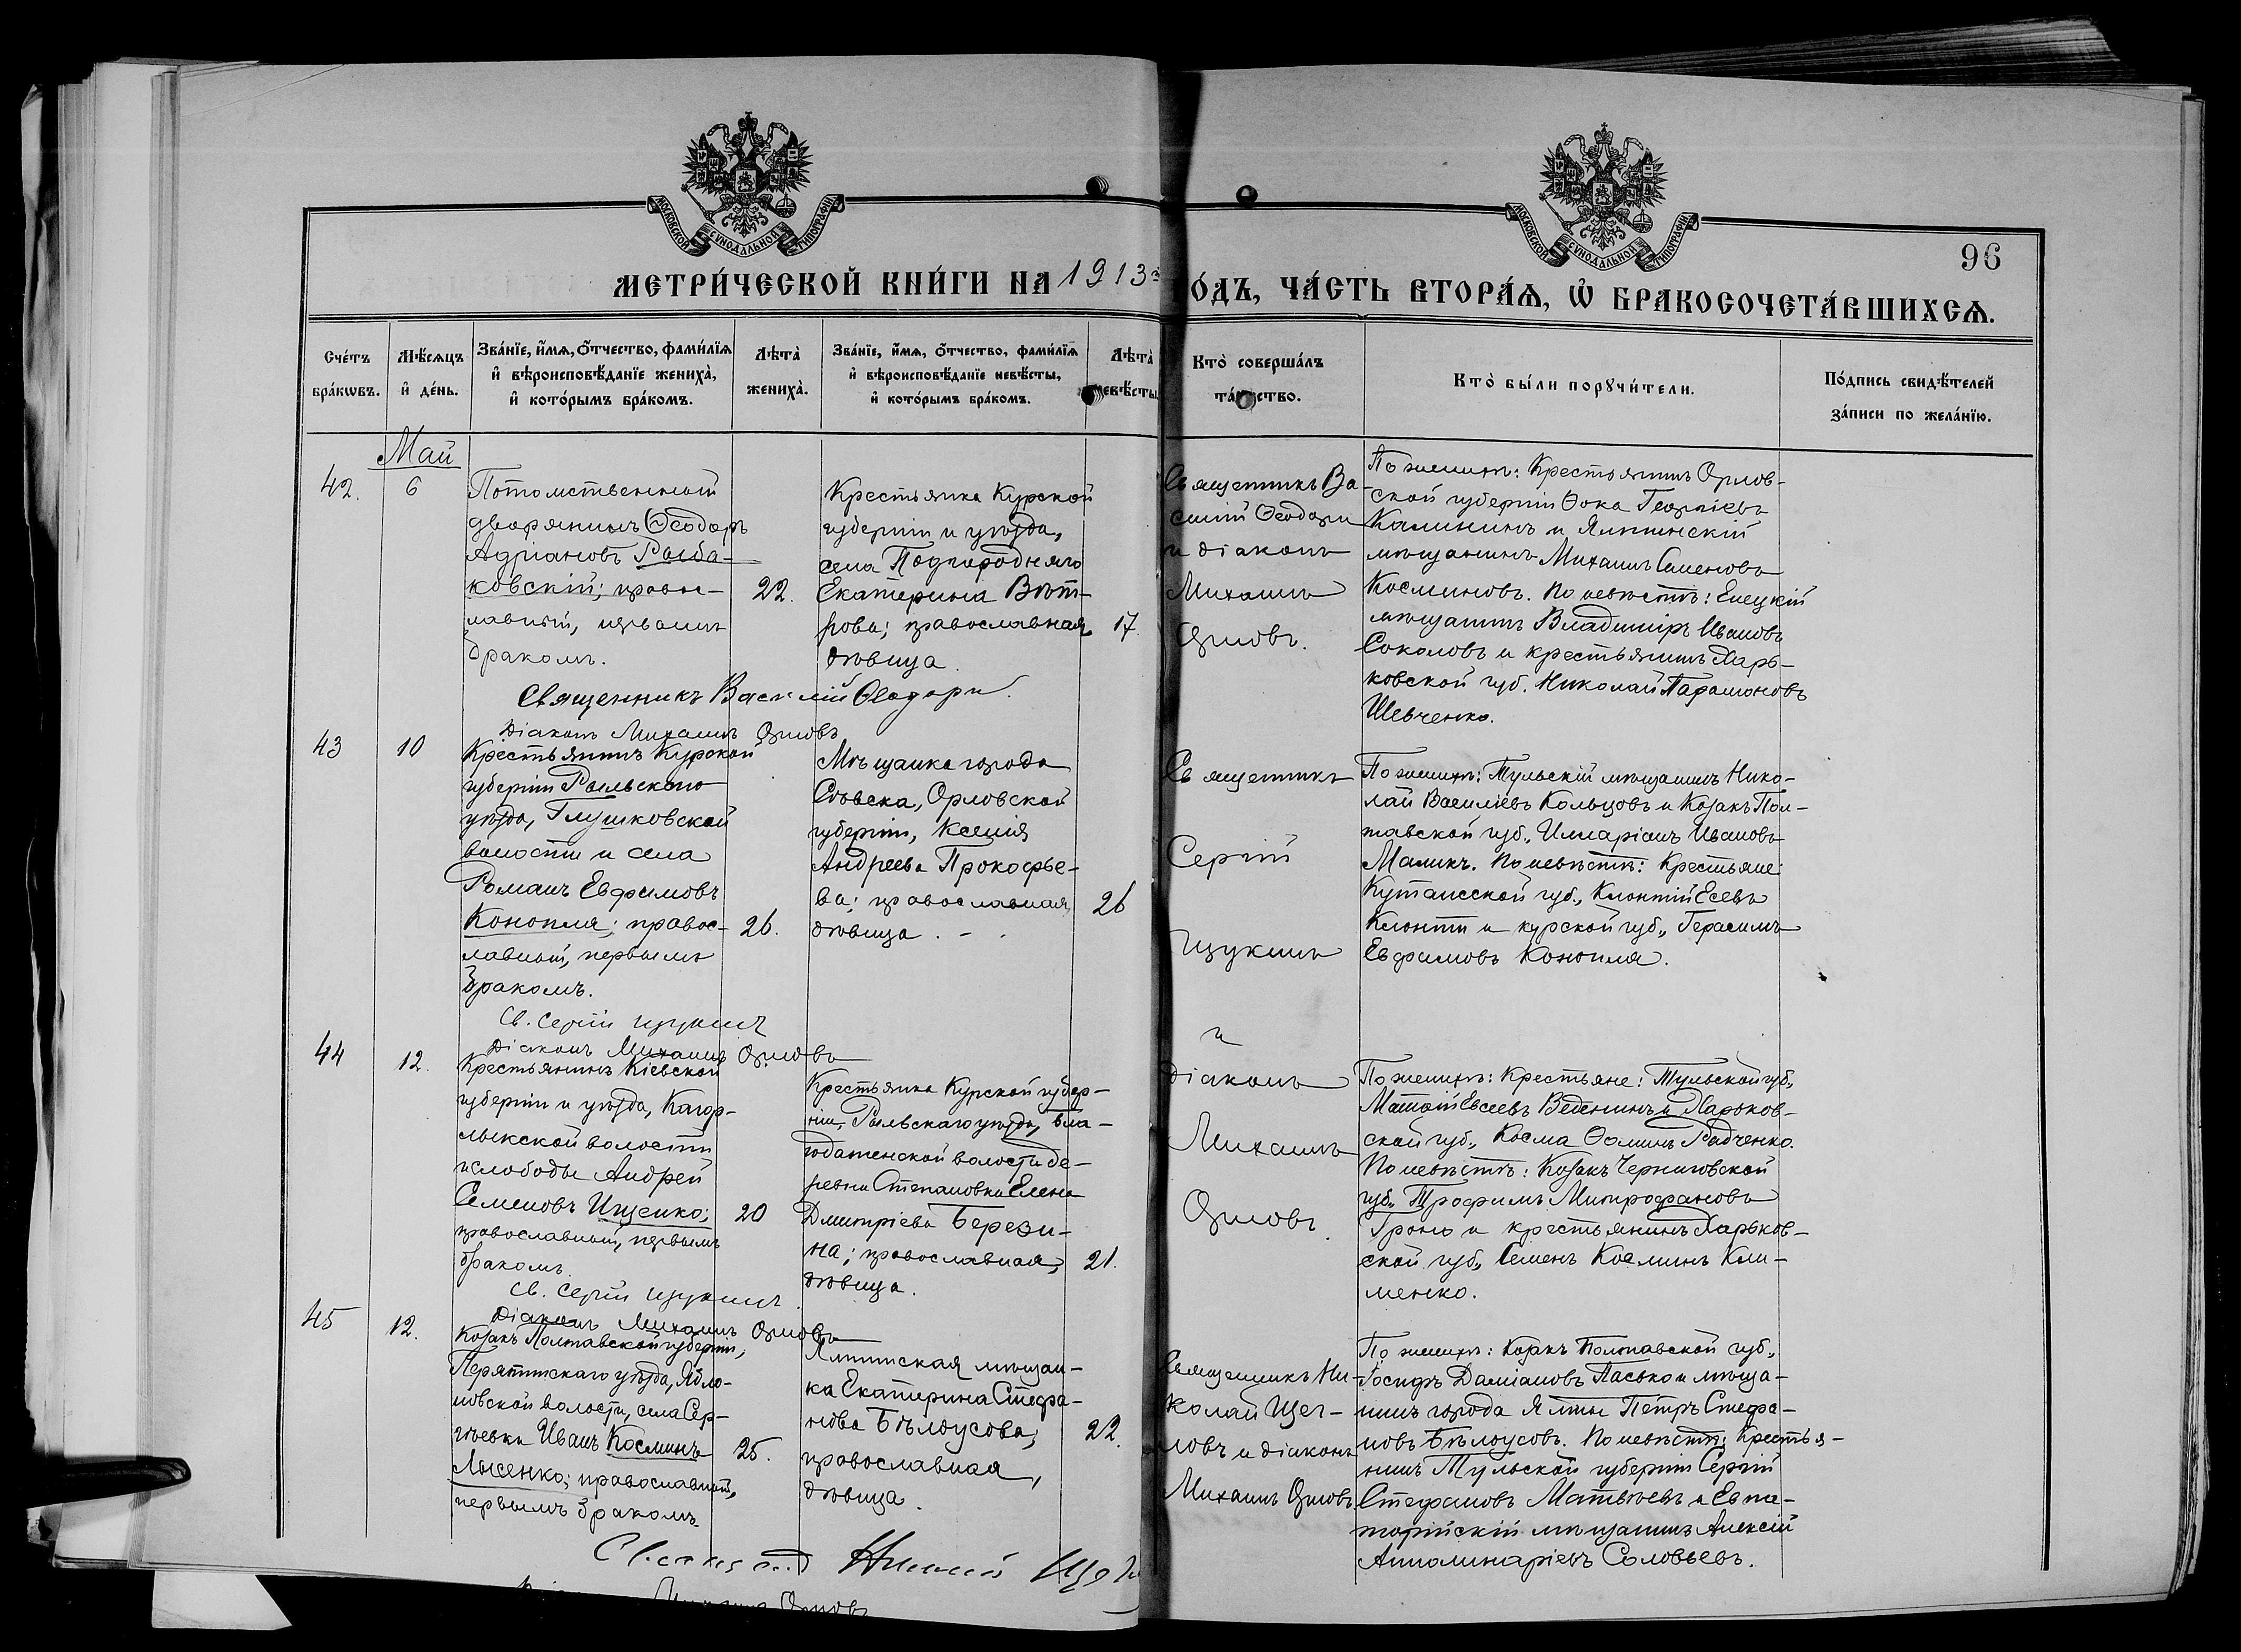 МОСКОВСКОЙ СУНОДАЛЬНОЙ ТИПОГРАФІИ
МОСКОВСКОЙ СУНОДАЛЬНОЙ ТИПОГРАФІИ
96
МЕТРИ́ЧЕСКОЙ КНИ́ГИ НА 1913 го́дъ, ЧА́СТЬ ВТОРА́Ѧ, Ѽ БРАКОСОЧЕТА́ВШИХСѦ.
Сче́тъ бра́кѡвъ.
Мѣ́сѧцъ и҆ де́нь.
Зва́нїе, и҆́мѧ, ѻ҆́тчество, фами́лїѧ
и҆ вѣроисповѣ́данїе жениха̀,
и҆ кото́рымъ бра́комъ.
Лѣта̀ жениха̀.
Зва́нїе, и҆́мѧ, ѻ҆́тчество, фами́лїѧ
и҆ вѣроисповѣ́данїе невѣ́сты,
и҆ кото́рымъ бра́комъ.
Лѣта̀ невѣ́сты
Кто̀ соверша́лъ
та́инство.
Кто̀ бы́ли порꙋчи́тели.
По́дпись свидѣ́телей
за́писи по жела́нїю.
Май
42.
6
Потомственный
дворянинъ Ѳеодоръ
Адріановъ Рыба-
ковскій; право-
лавный, первымъ
бракомъ.
22.
Крестьянка Курской
губерніи и уѣзда,
села Подгородняго
Екатерина Вѣт-
рова; православная,
дѣвица.
17.
Священникъ Ва-
силій Ѳеодори
и діаконъ
Михаилъ
Орловъ.
По женихѣ: Крестьянинъ Орлов-
ской губерніи Ѳока Георгіевъ
Калининъ и Ялтинскій
мѣщанинъ Михаилъ Семеновъ
Косминовъ. По невѣстѣ: Елецкій
мѣщанинъ Владиміръ Ивановъ
Соколовъ и крестьянинъ Харь-
ковской губ. Николай Парамоновъ
Шевченко.
Священникъ Василій Ѳеодори.
Діаконъ Михаилъ Орловъ
43
10
Крестьянинъ Курской
губерніи Рыльскаго
уѣзда, Глушковской
волости и села
Романъ Евфимовъ
Конопля; правос-
лавный, первымъ
бракомъ.
26.
Мѣщанка города
Сѣвска, Орловской
губерніи, Ксенія
Андреева Прокофье-
ва; православная
дѣвица.
26
Священникъ
Сергій
Щукинъ
По женихѣ: Тульскій мѣщанинъ Нико-
лай Василіевъ Кольцовъ и Козакъ Пол-
тавской губ., Илларіонъ Ивановъ
Маликъ. По невѣстѣ: Крестьяне:
Кутаисской губ., Клонтій Есевъ
Клонти и курской губ., Герасимъ
Евфимовъ Конопля.
Св. Сергій Щукинъ
Діаконъ Михаилъ Орловъ
44
12.
Крестьянинъ Кіевской
губерніи и уѣзда, Кагар-
лыкской волости
и слободы Андрей
Семеновъ Ищенко;
православный, первымъ
бракомъ.
20
Крестьянка Курской губер-
ніи, Рыльскаго уѣзда, Бла-
годатенской волости де-
ревни Степановки Елена
Дмитріева Берези-
на; православная,
дѣвица.
21.
и
діаконъ
Михаилъ
Орловъ.
По женихѣ: Крестьяне: Тульской губ.,
Матвій Евсеевъ Веденинъ и Харьков-
ской губ., Косма Ѳоминъ Радченко.
По невѣстѣ: Козакъ Черниговской
губ., Трофимъ Митрофановъ
Громо и крестьянинъ Харьков-
ской губ., Семенъ Косминъ Кли-
менко.
Св. Сергій Щукинъ.
Діаконъ Михаилъ Орловъ
45
12.
Козакъ Полтавской губерніи,
Пирятинскаго уѣзда, Ябло-
новской волости, села Сер-
гѣевки Иванъ Косминъ
Лысенко; православный,
первымъ бракомъ.
25.
Ялтинская мѣщан-
ка Екатерина Стефа-
нова Бѣлоусова;
православная,
дѣвица.
22.
Священникъ Ни-
колай Щег-
ловъ и діаконъ
Михаилъ Орловъ
По женихѣ: Козакъ Полтавской губ.,
Іосифъ Даміановъ Пасько и мѣща-
нинъ города Ялты Петръ Стефа-
новъ Бѣлоусовъ. По невѣстѣ: Крестья-
нинъ Тульской губерніи Сергій
Стефановъ Матвѣевъ и Евпа-
торійскій мѣщанинъ Алексій
Апполинаріевъ Соловьевъ.
Священникъ Николай Щегл
Михаилъ Орловъ